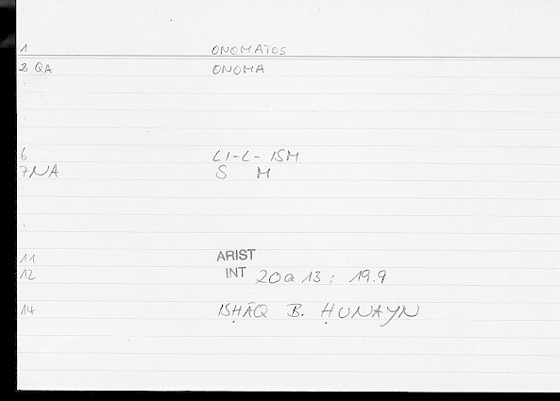 1 ONOMATOS
2 QA ONOMA
6 LI-L-ISM
7 NA S M
11 ARIST
12 INT 20a 13 : 19.9
14 ISḤĀQ B. ḤUNAYN